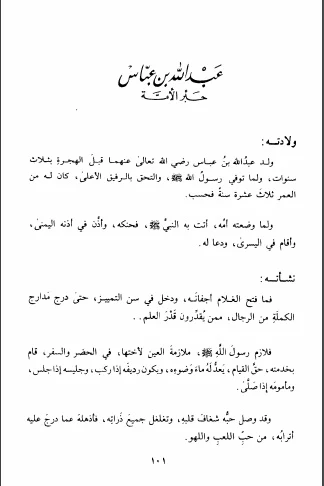 عبد الله بن عباس
حبر الأمة
ولادتـــه :
ولد عبدُالله بنُ عباس رضي الله تعالىٰ عنهما قبلَ الهجرةِ بثلاث
سنوات، ولما توفي رسولُ الله ﷺ، والتحق بالرفيق الأعلىٰ، كان له من
العمر ثلاثَ عشرةَ سنةً فحسب.
ولما وضعته أمُّه، أتت به النبيَّ ﷺ، فحنكه، وأذَّن في أذنه اليمنىٰ،
وأقام في اليسرىٰ، ودعا له.
نشـأتــه :
فما فتح الغـلام أجفانَـه، ودخل في سن التمييـز، حتىٰ درج مَدارج
الكملَةِ من الرجال، ممن يُقدِّرون قَدْرَ العلم. .
فلازم رسولَ اللَّهِ ﷺ، ملازمةَ العين لأختها، في الحضر والسفر، قام
بخدمته، حقَّ القيام، يَعدُّ لَهُ ماءَ وَضوءِه، ويكون رديفَه إذا ركب، وجليسه إذا جلس،
ومأمومَه إذا صَلَّىٰ.
وقد وصل حبُّه شغافَ قلبِه، وتغلغل جميعَ ذراتِه، فأذهلهُ عما درجَ عليه
أترابُه، من حبِّ اللعبِ واللهو.
١٠١